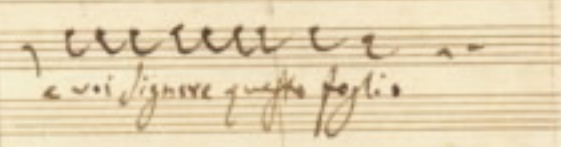 a voi Signore questo foglio